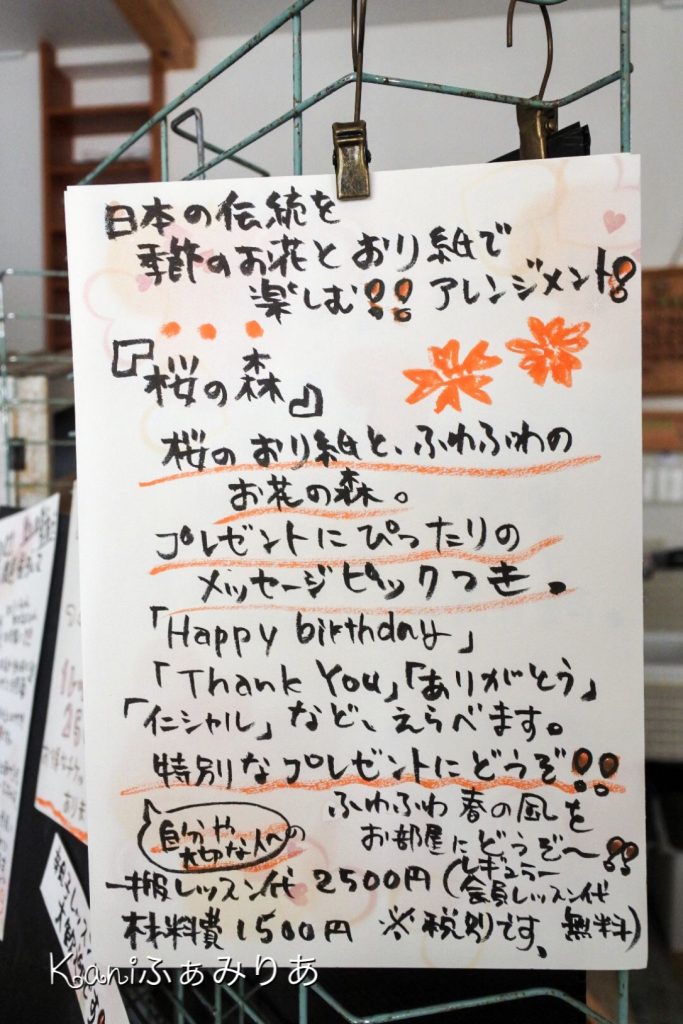 日本の伝統を
季節のお花とおり紙で
楽しむ!! アレンジメント!
『桜の森』
桜のおり紙と、ふわふわの
お花の森。
プレゼントにぴったりの
メッセージピックつき。
「Happy birthday」
「Thank You」「ありがとう」
「イニシャル」など、えらべます。
特別なプレゼントにどうぞ!!
自分や
大切な人への
ふわふわ春の風を
お部屋にどうぞ〜!!
一般レッスン代 2500円(レギュラー
会員レッスン代
材料費 1500円 ※税別です、無料)
Kaniふぁみりあ